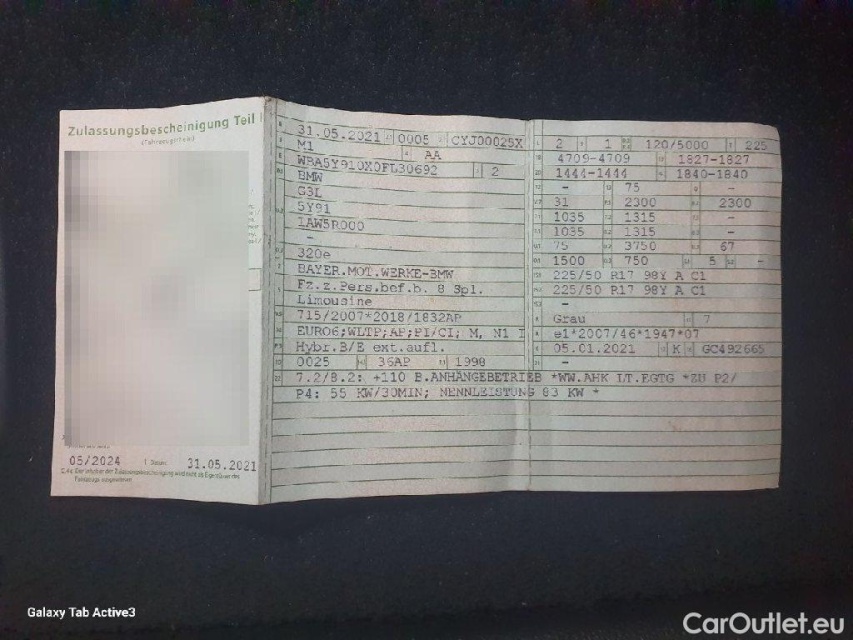 Zulassungsbescheinigung Teil I
(Fahrzeugschein)
05/2024 31.05.2021
31.05.2021 0005 CYJ00025X
M1 AA
WBA5Y910X0FL30692 2
BMW
G3L
5Y91
1AW5R000
–
320e
BAYER.MOT.WERKE-BMW
Fz.z.Pers.bef.b. 8 Spl.
Limousine
715/2007*2018/1832AP
EURO6;WLTP;AP;PI/CI; M, N1 I
Hybr.B/E ext.aufl.
0025 36AP 1998
2 1 120/5000 225
4709-4709 1827-1827
1444-1444 1840-1840
– 75 –
31 2300 2300
1035 1315
1035 1315
75 3750 67
1500 750 5 –
225/50 R17 98Y A C1
225/50 R17 98Y A C1
–
Grau 7
e1*2007/46*1947*07
05.01.2021 K GC492665
–
7.2/8.2: +110 B.ANHÄNGEBETRIEB *WW.AHK LT.EGTG *ZU P2/
P4: 55 KW/30MIN; NENNLEISTUNG 83 KW *
Galaxy Tab Active3
CarOutlet.eu